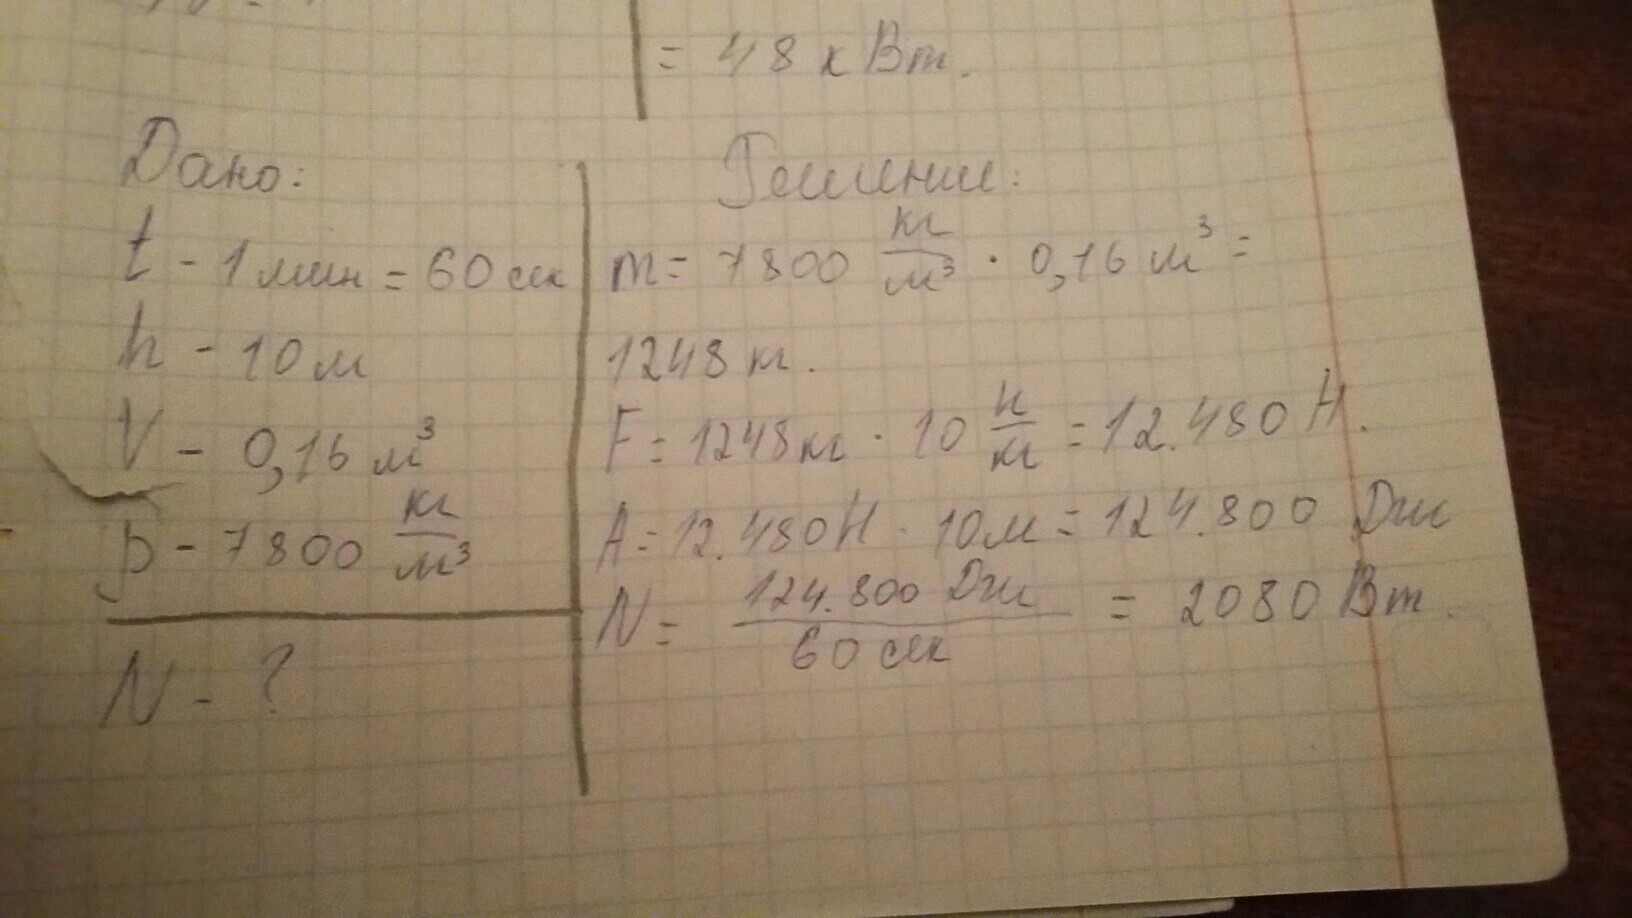 = 48 кВт.
Дано:
t - 1 мин = 60 сек
h - 10 м
V - 0,16 м³
р - 7800 кг/м³
N - ?
Решение:
m = 7800 кг/м³ · 0,16 м³ =
1248 кг.
F = 1248 кг · 10 н/кг = 12.480 Н.
A = 12.480 Н · 10 м = 124.800 Дж
N = 124.800 Дж / 60 сек = 2080 Вт.